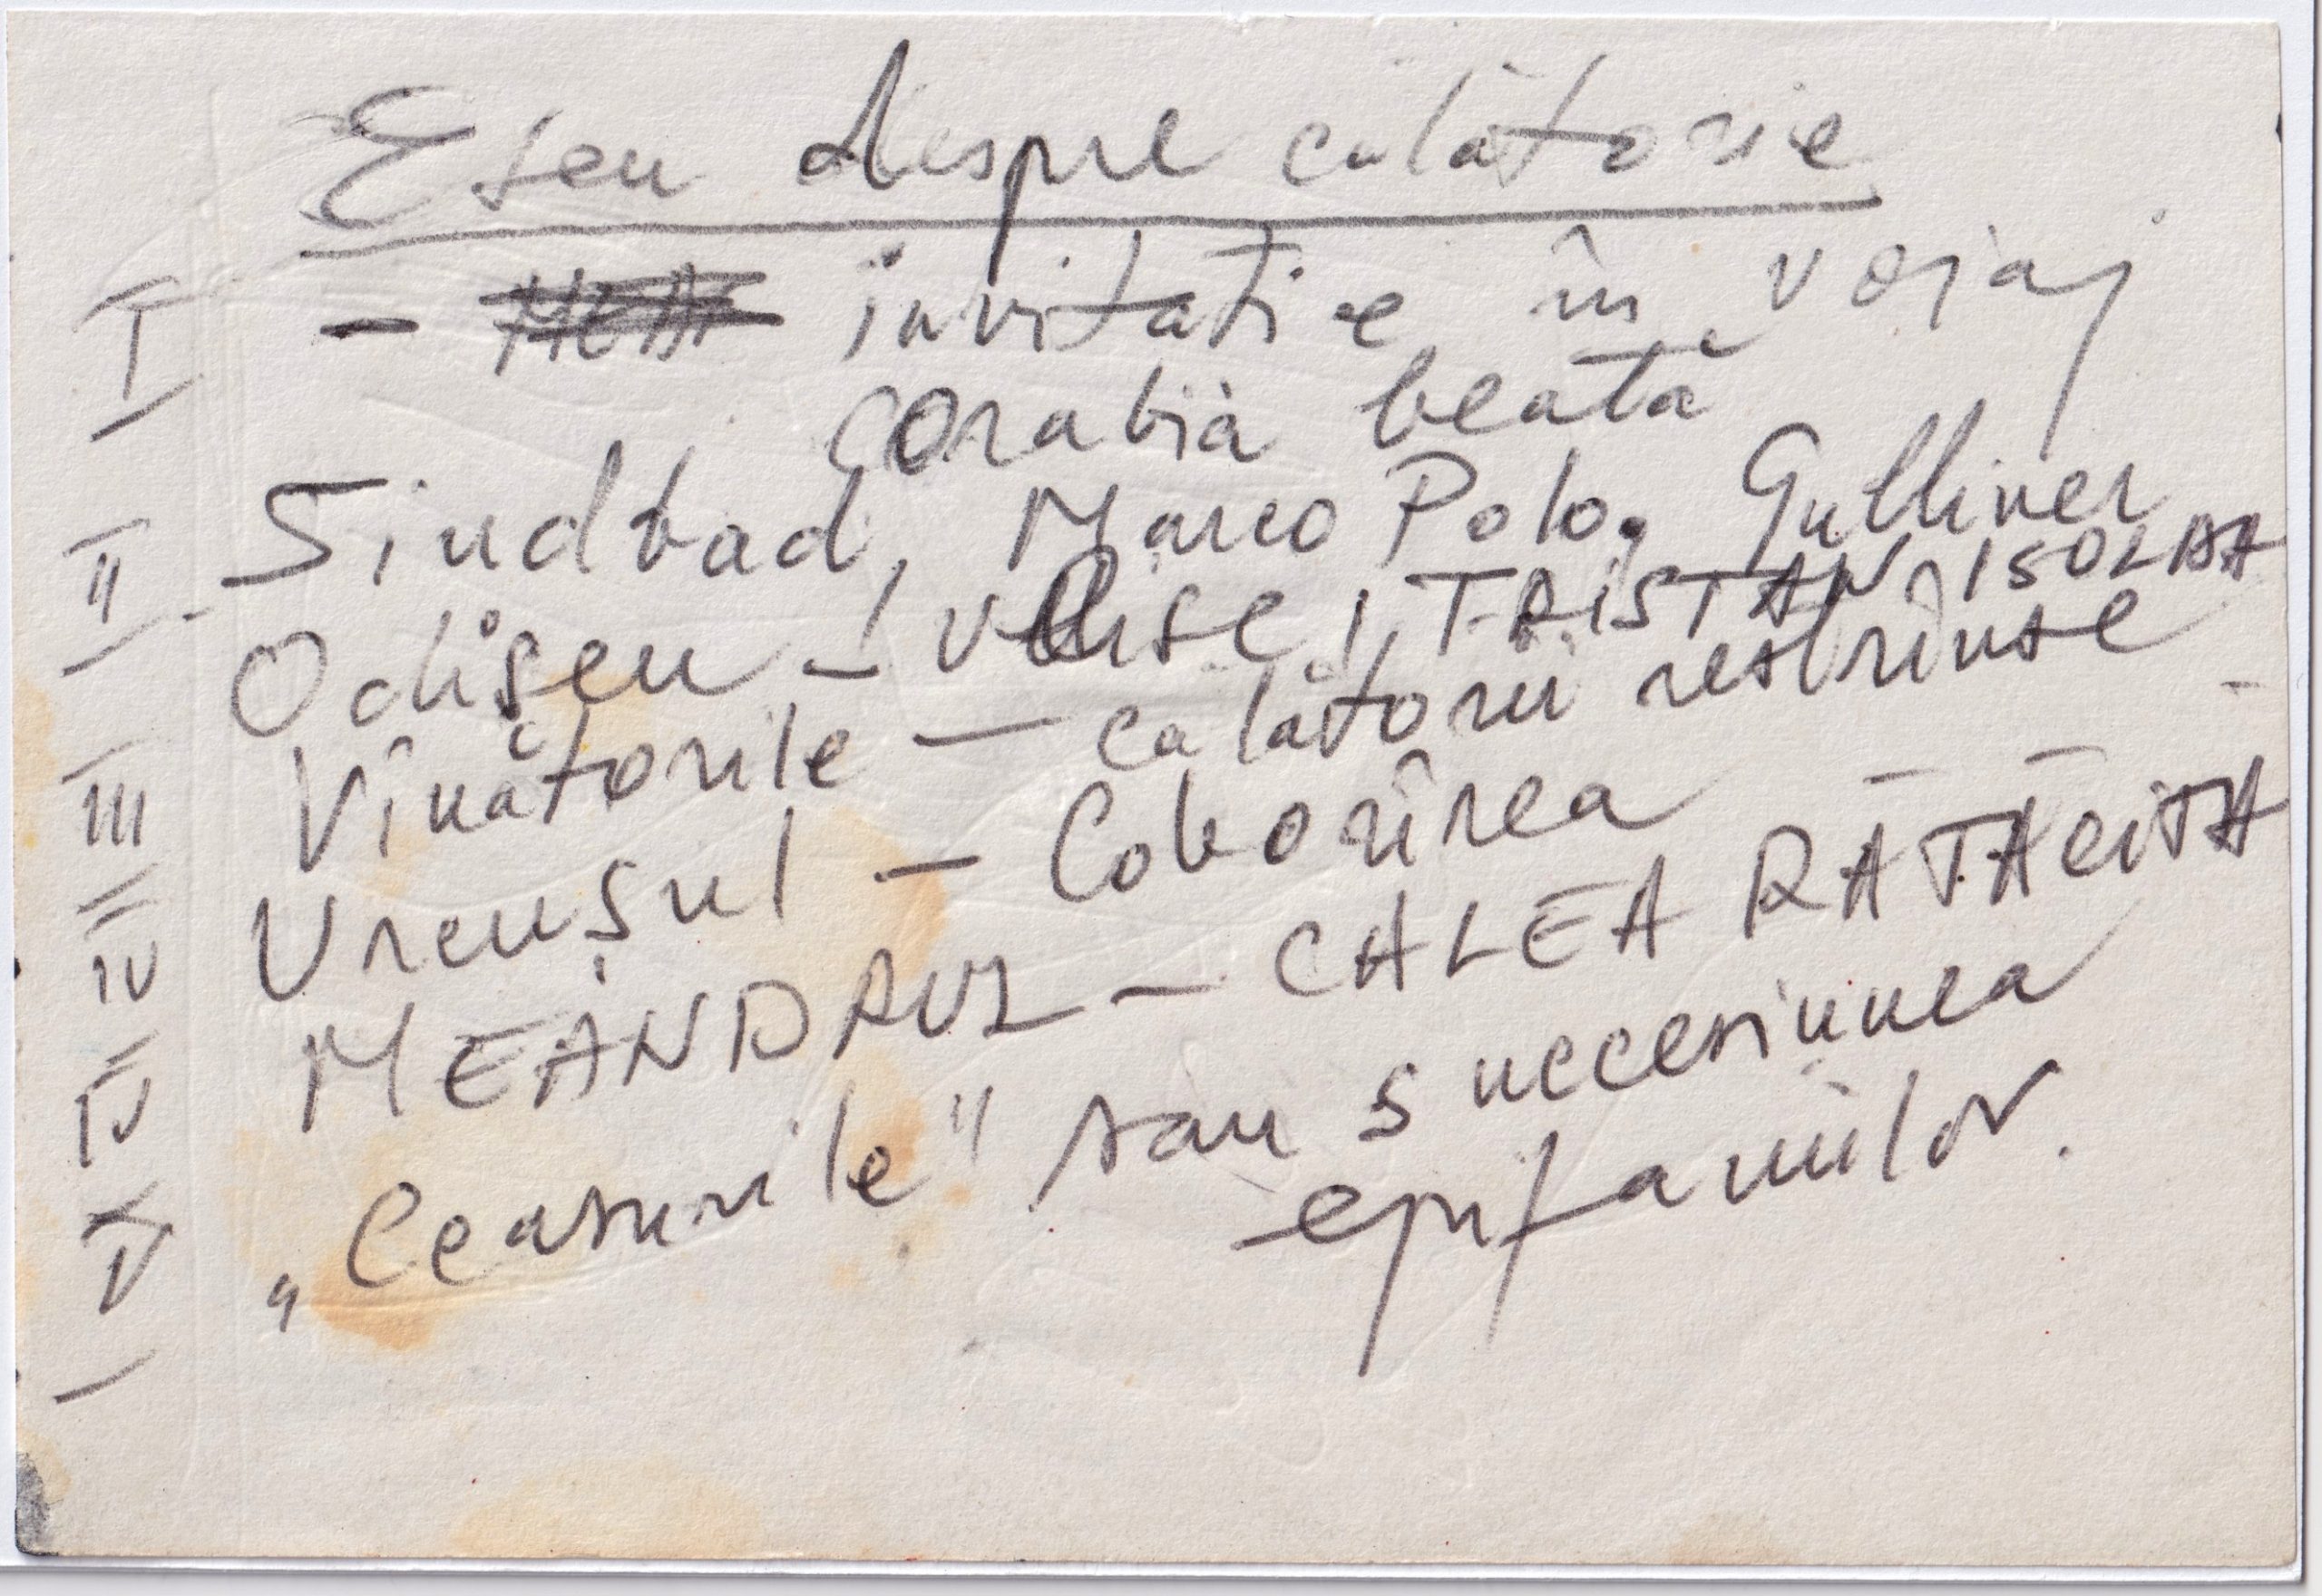 Eseu despre călătorie
I - invitatie în voiaj
corabia beată
II - Sindbad, Marco Polo, Gulliver
Odiseu - Ulise, TRISTAN ISOLDA
III Vînătorile - călătorii restrînse
IV Urcuşul - Coborîrea
IV MEANDRUL - CALEA RĂTĂCITĂ
V „Ceasurile" sau succesiunea
epifaniilor.